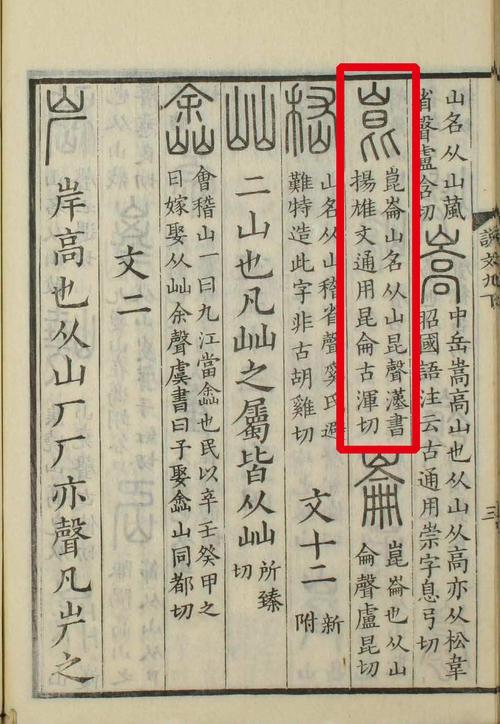 說文九下
三
山名从山葻
省聲盧含切
嵩
中岳嵩高山也从山从高亦从松韋
昭國語注云古通用崇字息弓切
崑
崑崙山名从山昆聲漢書
揚雄文通用昆侖古渾切
崙
崑崙也从山
侖聲盧昆切
嵇
山名从山稽省聲奚氏避
難特造此字非古胡雞切
文十二
新
附
屾
二山也凡屾之屬皆从屾
所臻
切
嵞
會稽山一曰九江當嵞也民以辛壬癸甲之
日嫁娶从屾余聲虞書曰予娶嵞山同都切
文二
屵
岸高也从山厂厂亦聲凡屵之